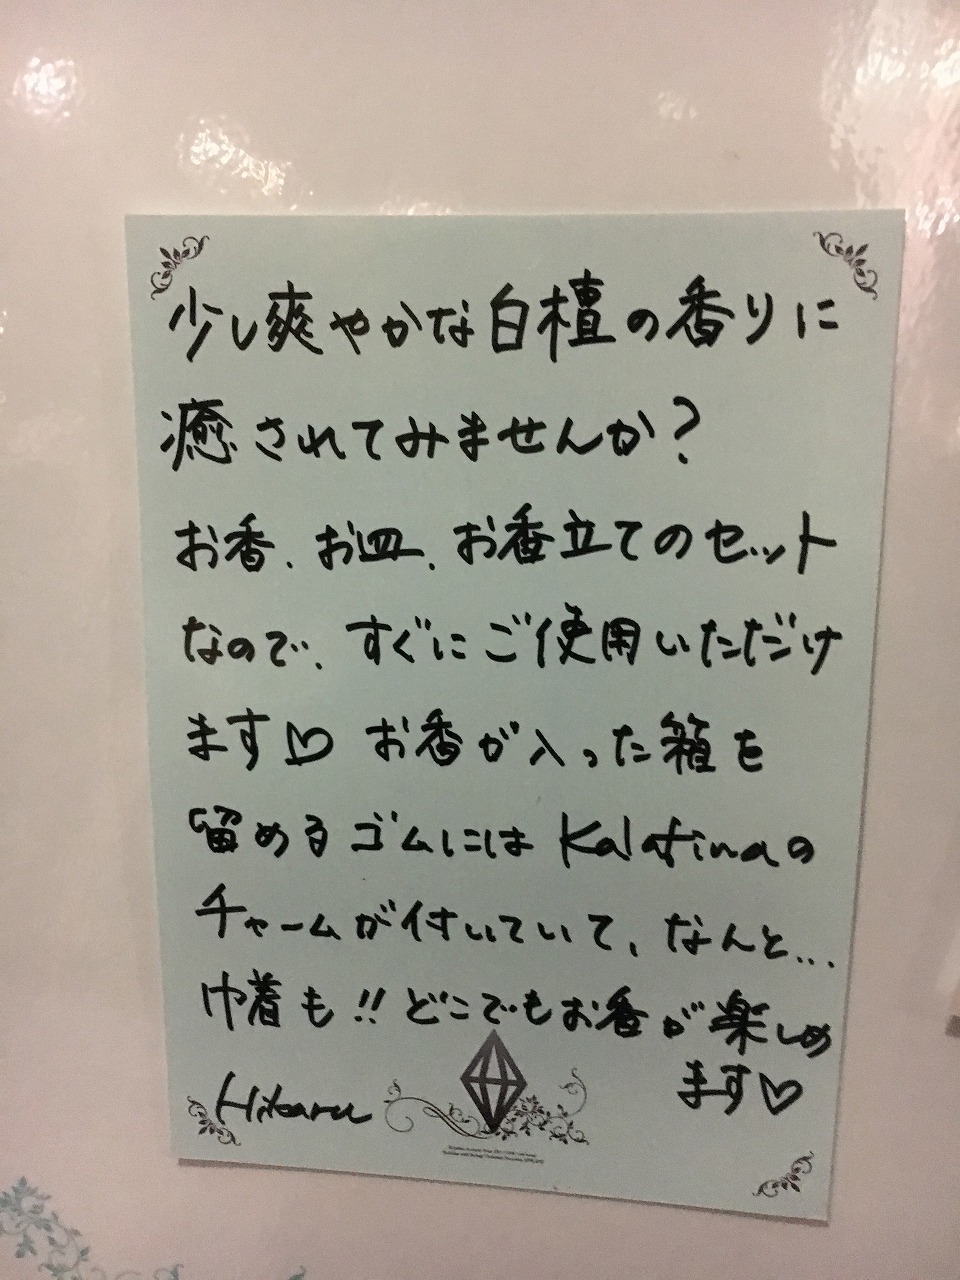 少し爽やかな白檀の香りに
癒されてみませんか?
お香、お皿、お香立てのセット
なので、すぐにご使用いただけ
ます♡ お香が入った箱を
留めるゴムには Kalafinaの
チャームが付いていて、なんと...
巾着も!! どこでもお香が楽しめ
ます♡
Hikaru